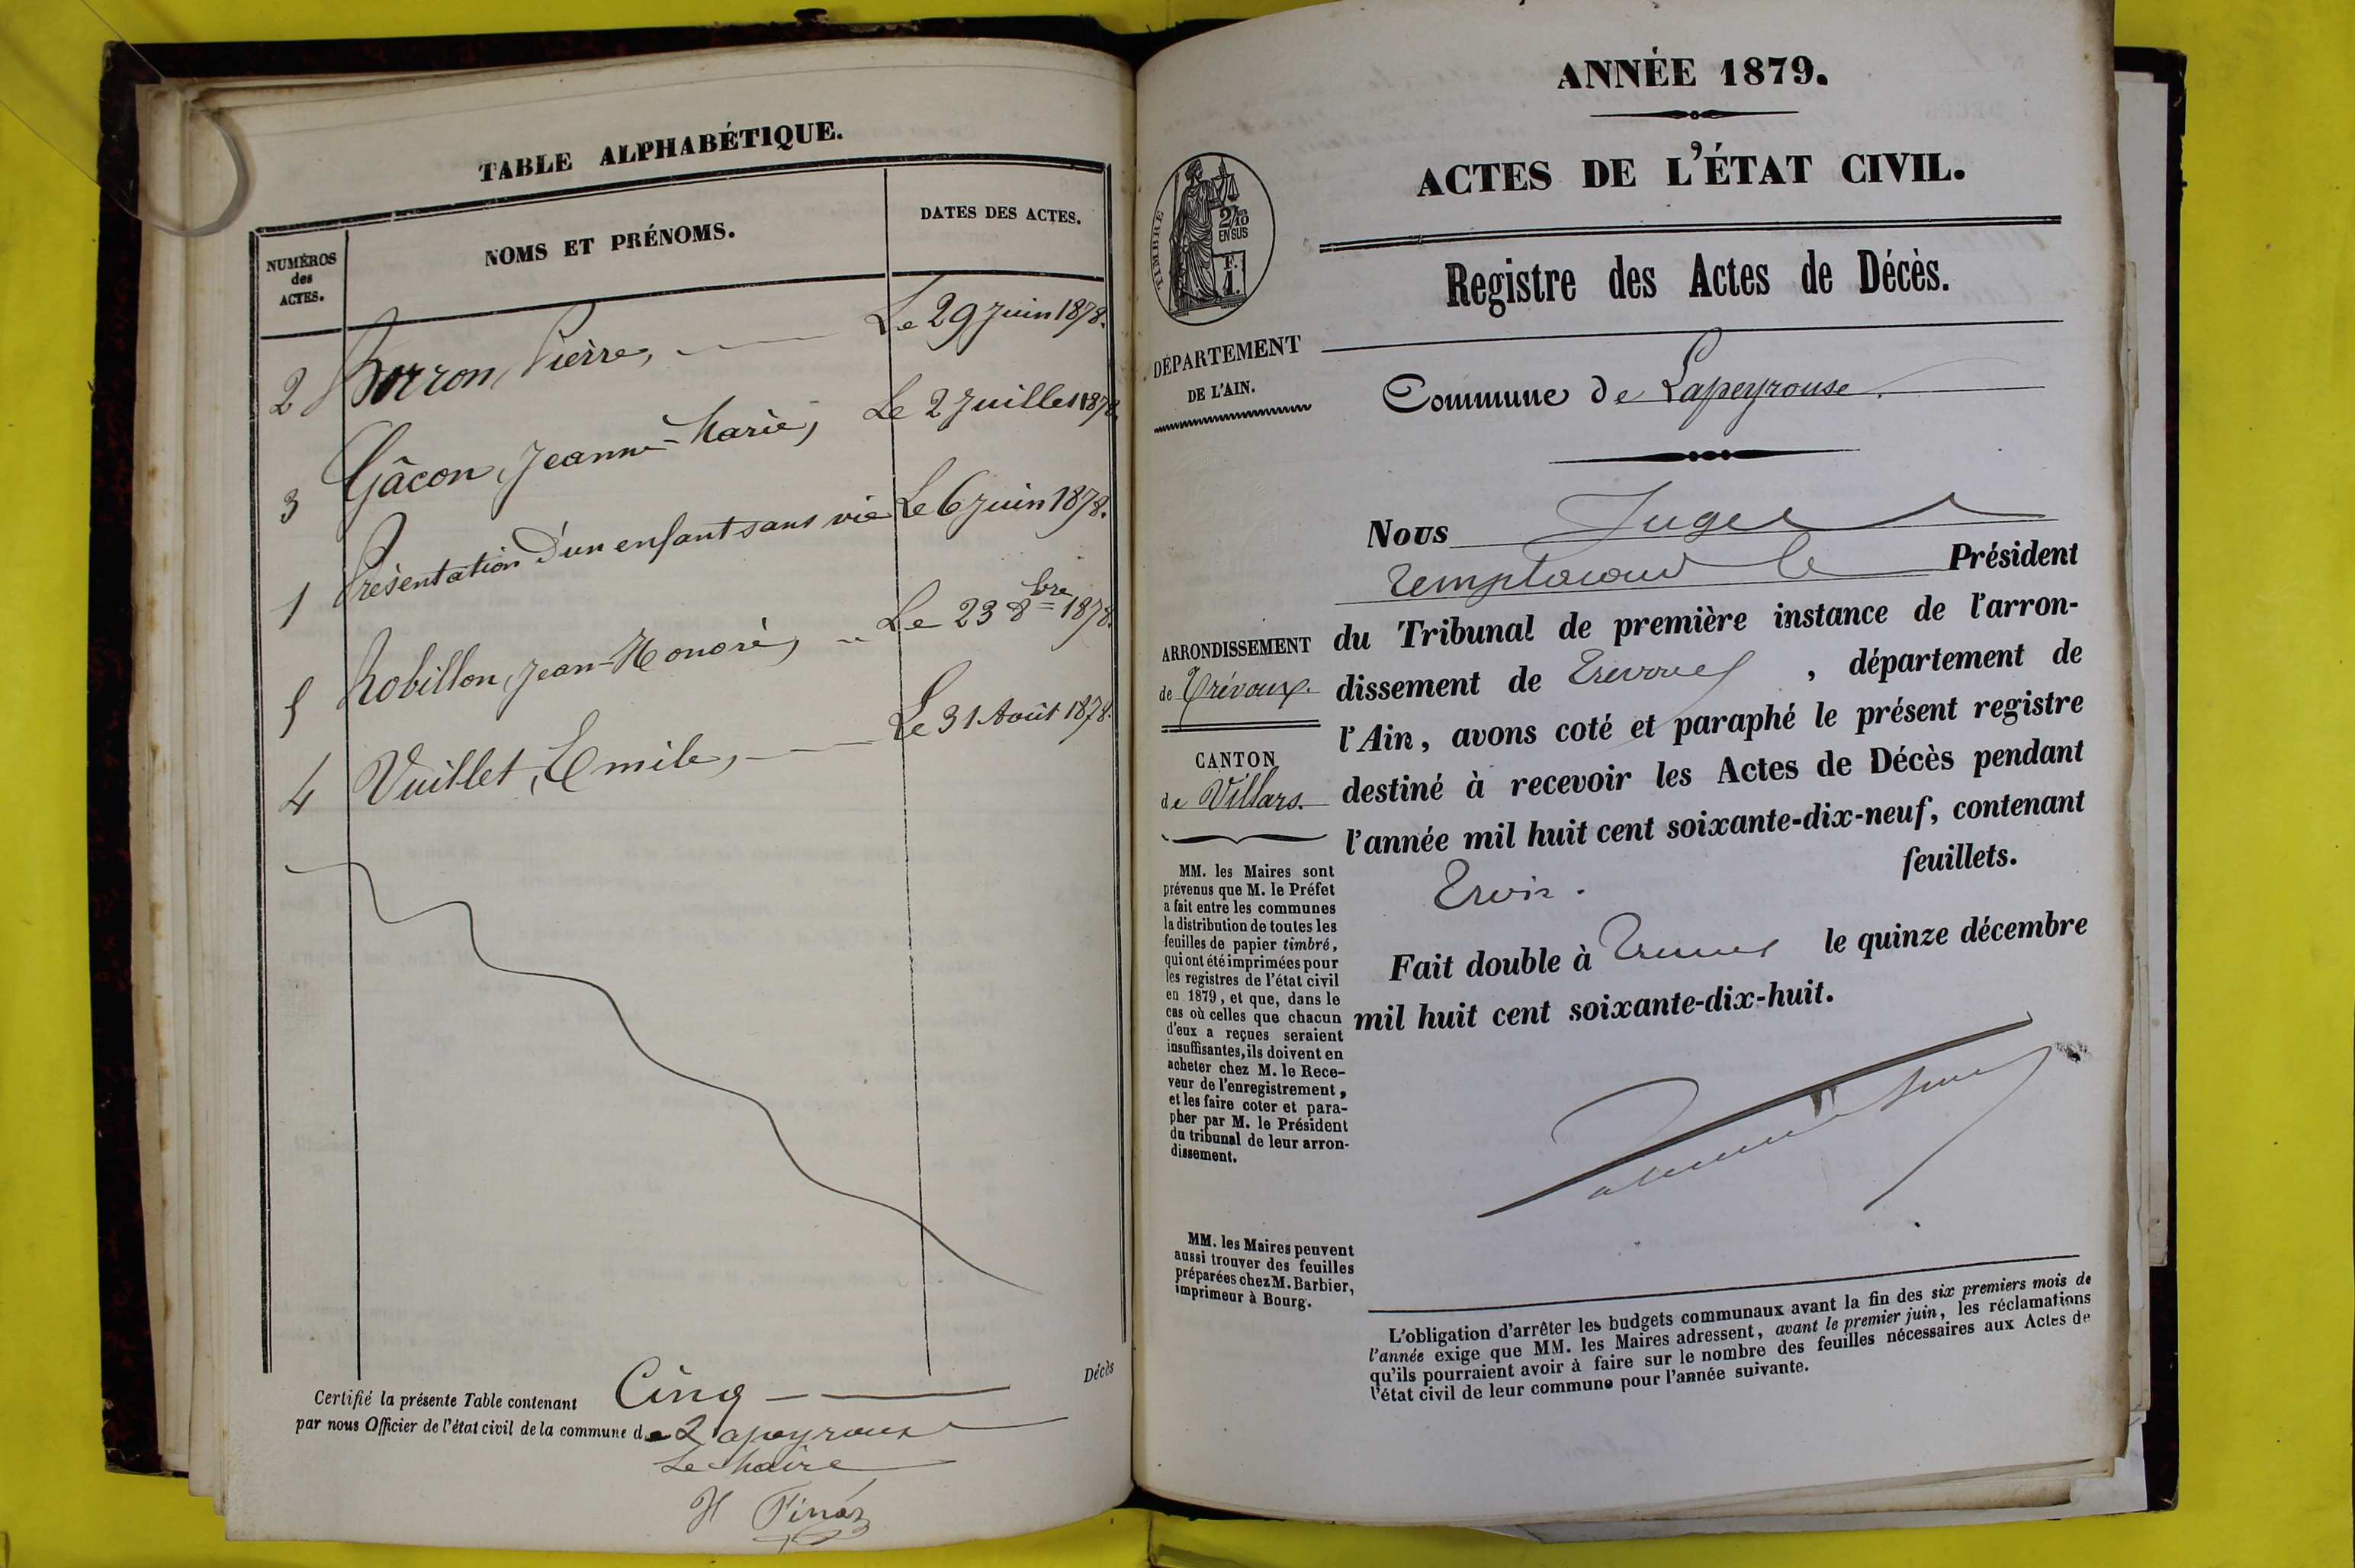 TABLE ALPHABÉTIQUE.
NUMÉROS
des
ACTES.
NOMS ET PRÉNOMS.
DATES DES ACTES.
2 Pierre, Le 29 Juin 1878.
3 Gâcon, Jeanne-Marie, Le 2 Juillet 1878.
1 Présentation d'un enfant sans vie Le 6 Juin 1878.
5 Robillon, Jean-Honoré, Le 23 8bre 1878.
4 Vuillet, Emile, Le 31 Août 1878.
Certifié la présente Table contenant Cinq Décès
par nous Officier de l'état civil de la commune de Lapeyrouse
Le Maire
H Finaz
ANNÉE 1879.
ACTES DE L'ÉTAT CIVIL.
TIMBRE
2/10
EN SUS
F.
1.
Registre des Actes de Décès.
DÉPARTEMENT
DE L'AIN.
Commune de Lapeyrouse.
ARRONDISSEMENT
de Trévoux.
CANTON
de Villars.
MM. les Maires sont
prévenus que M. le Préfet
a fait entre les communes
la distribution de toutes les
feuilles de papier timbré,
qui ont été imprimées pour
les registres de l'état civil
en 1879, et que, dans le
cas où celles que chacun
d'eux a reçues seraient
insuffisantes, ils doivent en
acheter chez M. le Rece-
veur de l'enregistrement,
et les faire coter et para-
pher par M. le Président
du tribunal de leur arron-
dissement.
MM. les Maires peuvent
aussi trouver des feuilles
préparées chez M. Barbier,
imprimeur à Bourg.
Nous Juge
remplaçant le Président
du Tribunal de première instance de l'arron-
dissement de Trévoux, département de
l'Ain, avons coté et paraphé le présent registre
destiné à recevoir les Actes de Décès pendant
l'année mil huit cent soixante-dix-neuf, contenant
Trois. feuillets.
Fait double à Trévoux le quinze décembre
mil huit cent soixante-dix-huit.
L'obligation d'arrêter les budgets communaux avant la fin des six premiers mois de
l'année exige que MM. les Maires adressent, avant le premier juin, les réclamations
qu'ils pourraient avoir à faire sur le nombre des feuilles nécessaires aux Actes de
l'état civil de leur commune pour l'année suivante.